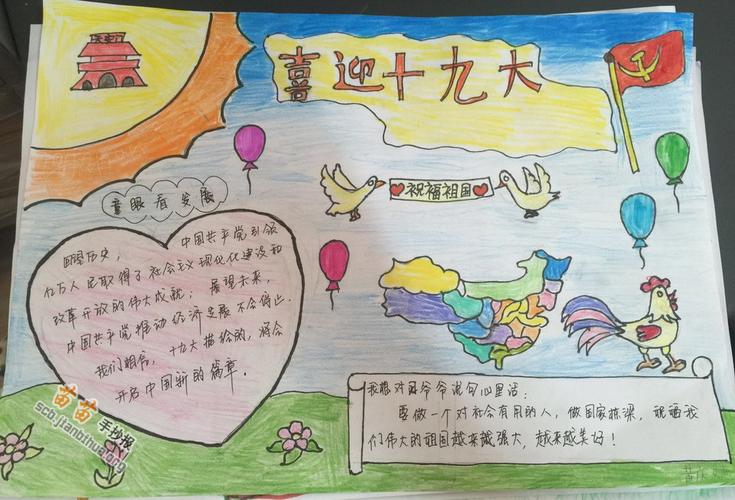 天安门
喜迎十九大
祝福祖国
童眼看发展
回望历史， 中国共产党引领
亿万人民取得了社会主义现代化建设和
改革开放的伟大成就； 展望未来，
中国共产党推动经济发展不会停止。
我们相信， 十九大描绘的，将会
开启中国新的篇章。
我想对习爷爷说句心里话：
要做一个对社会有用的人，做国家栋梁，祝福我
们伟大的祖国越来越强大，越来越美好！
苗苗手抄报
scb.jianbihua.org